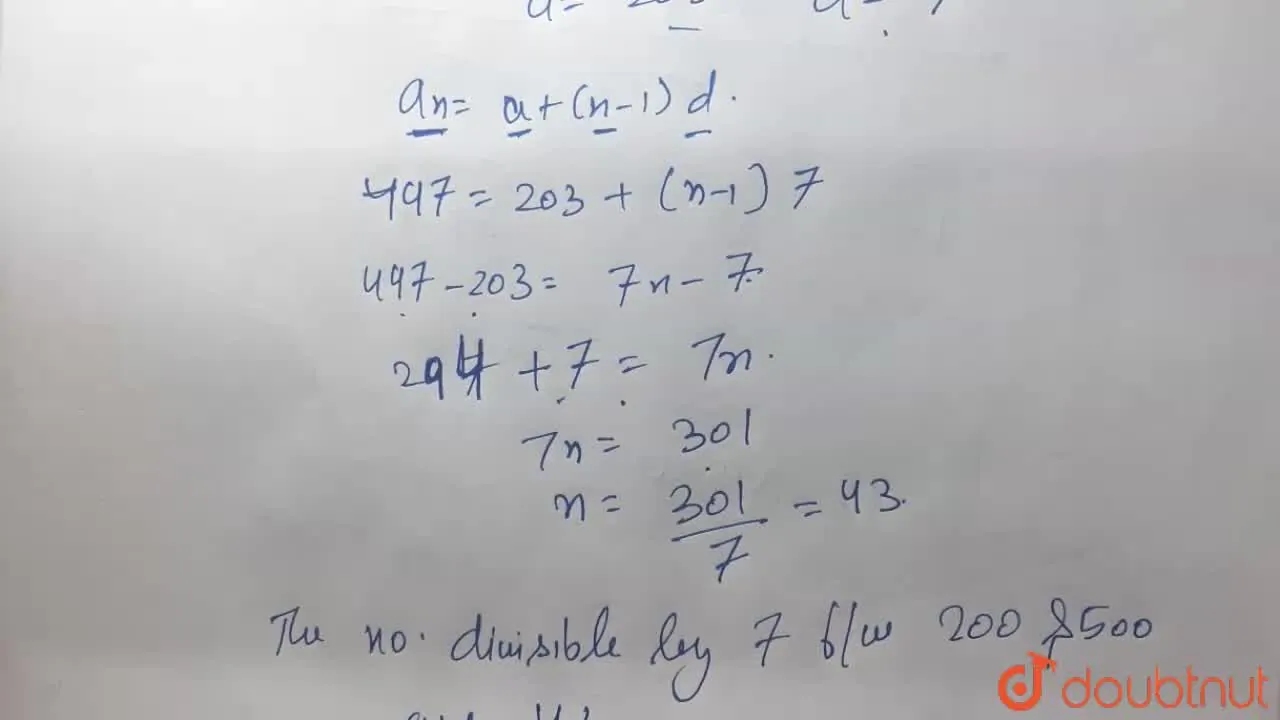 an = a + (n-1) d.
497 = 203 + (n-1) 7
497 - 203 = 7n - 7
294 + 7 = 7n.
7n = 301
n = 301/7 = 43.
The no. divisible by 7 b/w 200 & 500
doubtnut